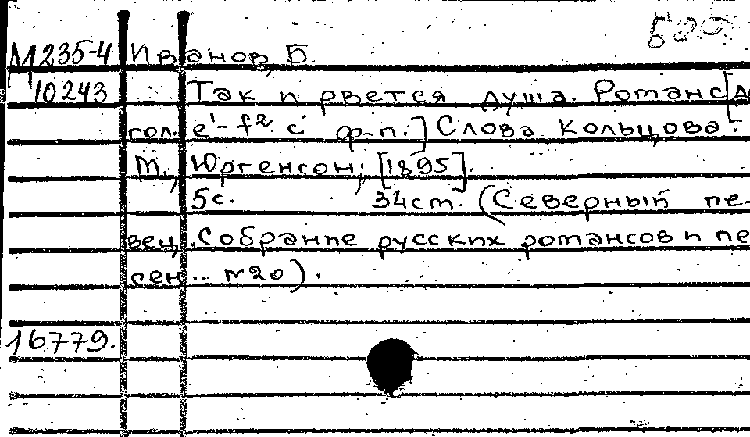 500
М235-4 Иванов, Б.
10243 Так и рвется душа. Романс [д
гол. e¹-f² с ф-п.] Слова Кольцова.
М., Юргенсон, [1895].
5с. 34cm. (Северный пе-
вец. Собрание русских романсов и пе
сен... №20).
16779.